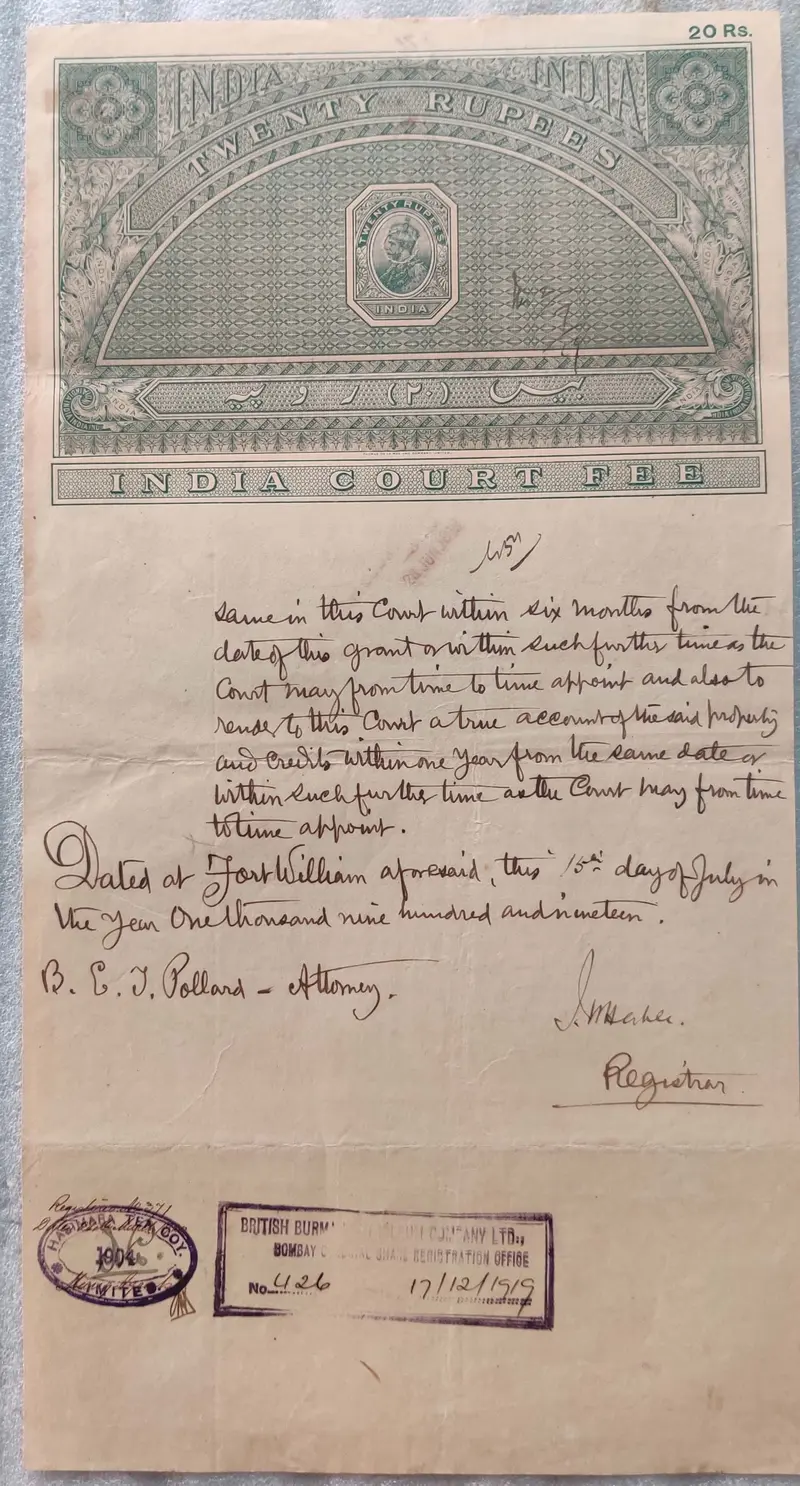 20 Rs.
INDIA INDIA
TWENTY RUPEES
TWENTY RUPEES
INDIA
بیس (۲۰) روپیہ
INDIA COURT FEE
same in this Court within six months from the
date of this grant or within such further time as the
Court may from time to time appoint and also to
render to this Court a true account of the said property
and credits within one Year from the same date or
within such further time as the Court may from time
to time appoint.
Dated at Fort William aforesaid, this 15th day of July in
the Year One thousand nine hundred and nineteen.
B. E. J. Pollard - Attorney.
Registrar
TEA COY.
1904
LIMITED
BRITISH BURM COMPANY LTD.,
BOMBAY REGISTRATION OFFICE
No. 426 17/12/1919